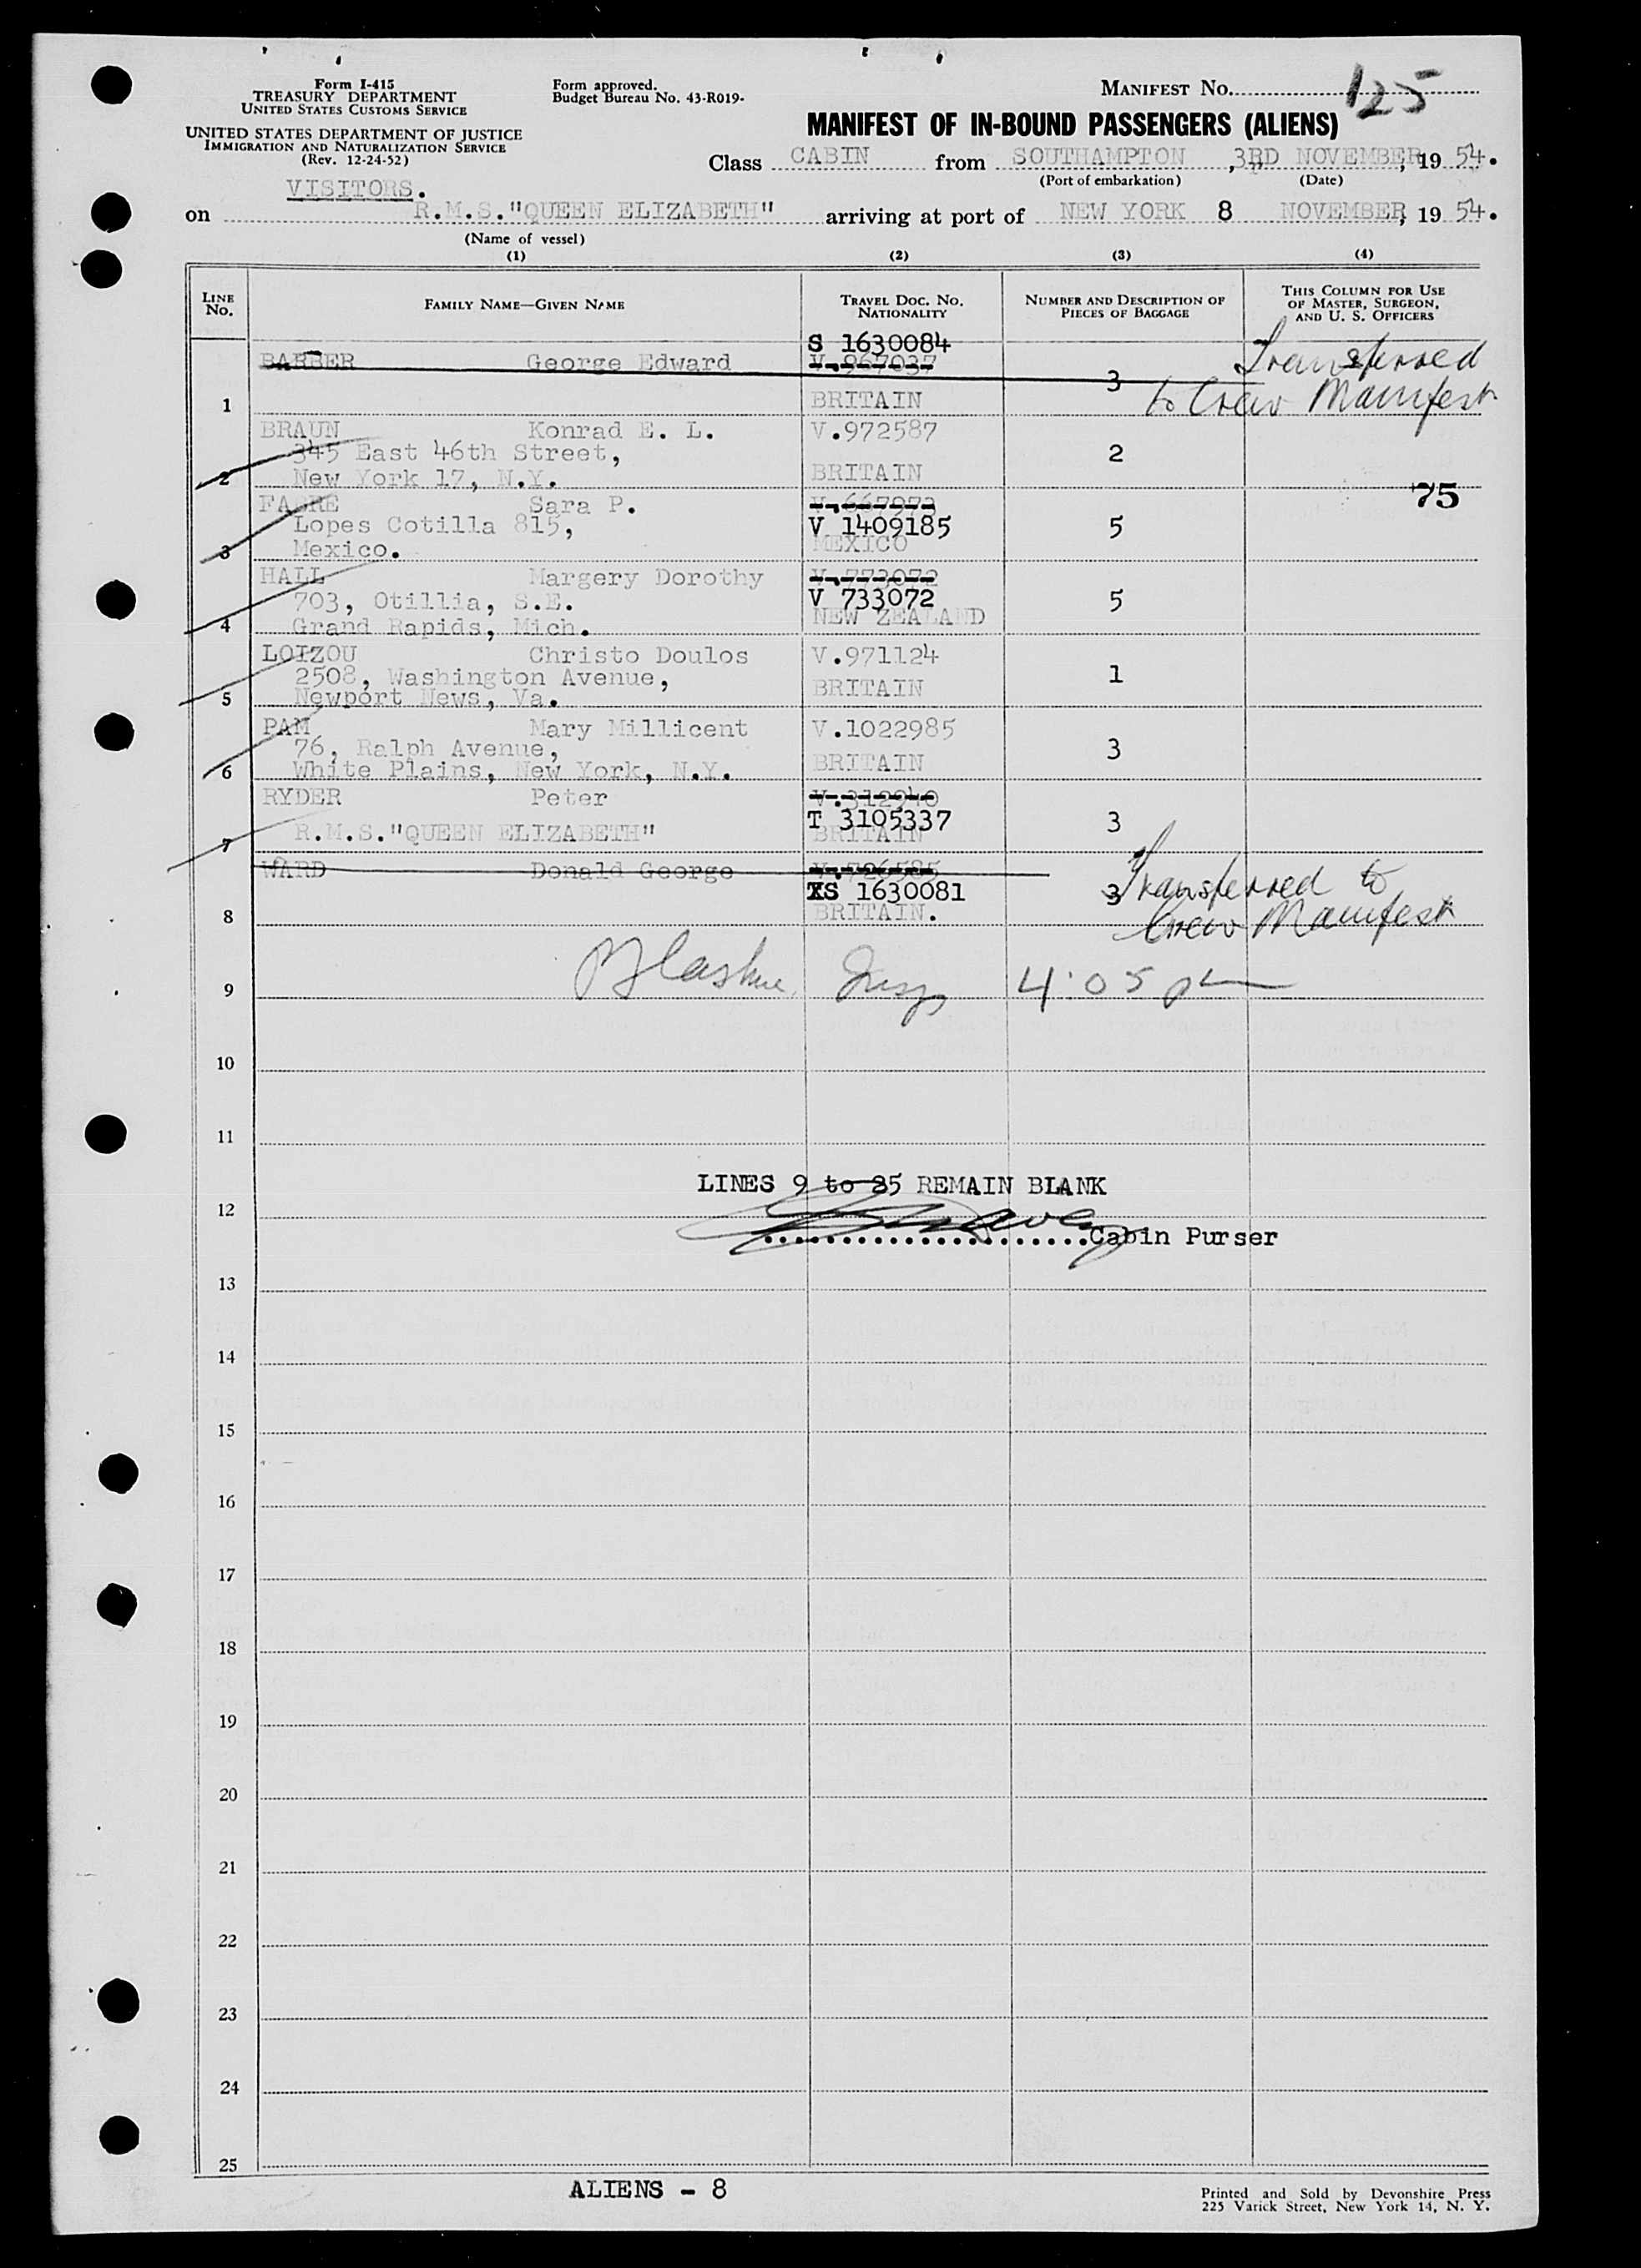 Form I-415
TREASURY DEPARTMENT
UNITED STATES CUSTOMS SERVICE
UNITED STATES DEPARTMENT OF JUSTICE
IMMIGRATION AND NATURALIZATION SERVICE
(Rev. 12-24-52)
Form approved.
Budget Bureau No. 43-R019-
MANIFEST No. 125
MANIFEST OF IN-BOUND PASSENGERS (ALIENS)
Class CABIN from SOUTHAMPTON, 3RD NOVEMBER, 19 54.
(Port of embarkation) (Date)
VISITORS.
on R.M.S."QUEEN ELIZABETH" arriving at port of NEW YORK 8 NOVEMBER, 19 54.
(Name of vessel)
(1) (2) (3) (4)
LINE No. FAMILY NAME—GIVEN NAME TRAVEL DOC. No. NATIONALITY NUMBER AND DESCRIPTION OF PIECES OF BAGGAGE THIS COLUMN FOR USE OF MASTER, SURGEON, AND U. S. OFFICERS
S 1630084
BARBER George Edward V.967037 Transferred
1 BRITAIN 3 to Crew Manifest
BRAUN Konrad E. L. V.972587
345 East 46th Street, 2
2 New York 17, N.Y. BRITAIN
75
Sara P. V.667973
Lopes Cotilla 815, V 1409185 5
3 Mexico. MEXICO
HALL Margery Dorothy V.773072
703, Otillia, S.E. V 733072 5
4 Grand Rapids, Mich. NEW ZEALAND
LOIZOU Christo Doulos V.971124
2508, Washington Avenue, 1
5 Newport News, Va. BRITAIN
PAM Mary Millicent V.1022985
76, Ralph Avenue, 3
6 White Plains, New York, N.Y. BRITAIN
RYDER Peter V.312940
T 3105337 3
7 R.M.S."QUEEN ELIZABETH" BRITAIN
WARD Donald George V.726585
XS 1630081 3 Transferred to
8 BRITAIN. Crew Manifest
9 Insp 4:05 pm
10
11
LINES 9 to 25 REMAIN BLANK
12
Cabin Purser
13
14
15
16
17
18
19
20
21
22
23
24
25
ALIENS - 8
Printed and Sold by Devonshire Press
225 Varick Street, New York 14, N. Y.